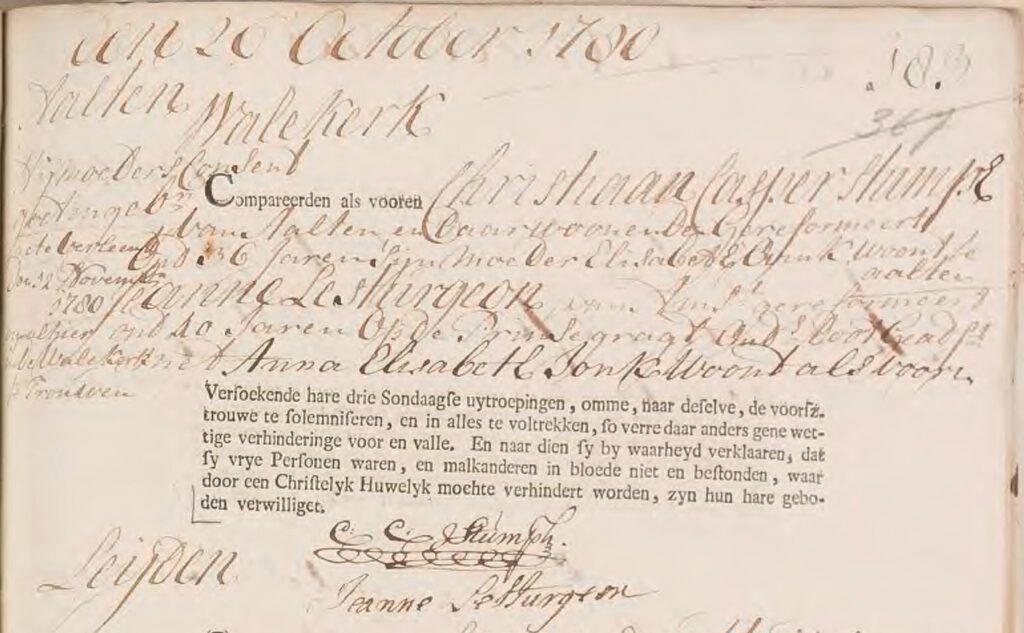 den 26 October 1780
183
367
Aalten Walekerk
Hij moeders Consent
goet ingebr.
acte verleent
den 12 Novembr.
1780
alhier
in de Walekerk
te Trouwen
Compareerden als vooren Christiaan Casper Stumph
van Aalten en Daar woonende Gereformeert
Oud 36 Jaren Zijn moeder Elisabeth Woont te
aalten
Jeanne Lesturgeon van gereformeert
oud 40 Jaren Op de Prinsegragt Oud.s Doot Geads.t
met Anna Elisabeth Jonk Woont als voorn.
Versoekende hare drie Sondaagse uytroepingen, omme, naar deselve, de voorsz.
trouwe te solemniseren, en in alles te voltrekken, so verre daar anders gene wet-
tige verhinderinge voor en valle. En naar dien sy by waarheyd verklaaren, dat
sy vrye Personen waren, en malkanderen in bloede niet en bestonden, waar
door een Christelyk Huwelyk mochte verhindert worden, zyn hun hare gebo-
den verwilliget.
C: C: Stumph.
Leijden
Jeanne Lesturgeon